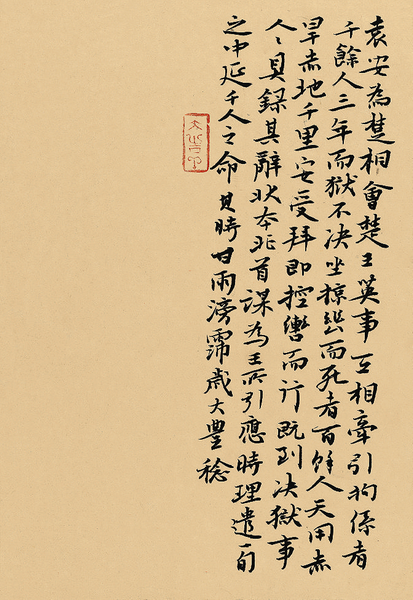 袁安為楚相會楚王英事互相牽引拘係者
千餘人三年而獄不決坐掠幽而死者百餘人天用赤
旱赤地千里安受拜即控轡而行既到決獄事
人々具錄其辭狀本非首謀為王所引應時理遣一旬
之中延千人之命其時甘雨滂霈歲大豐稔